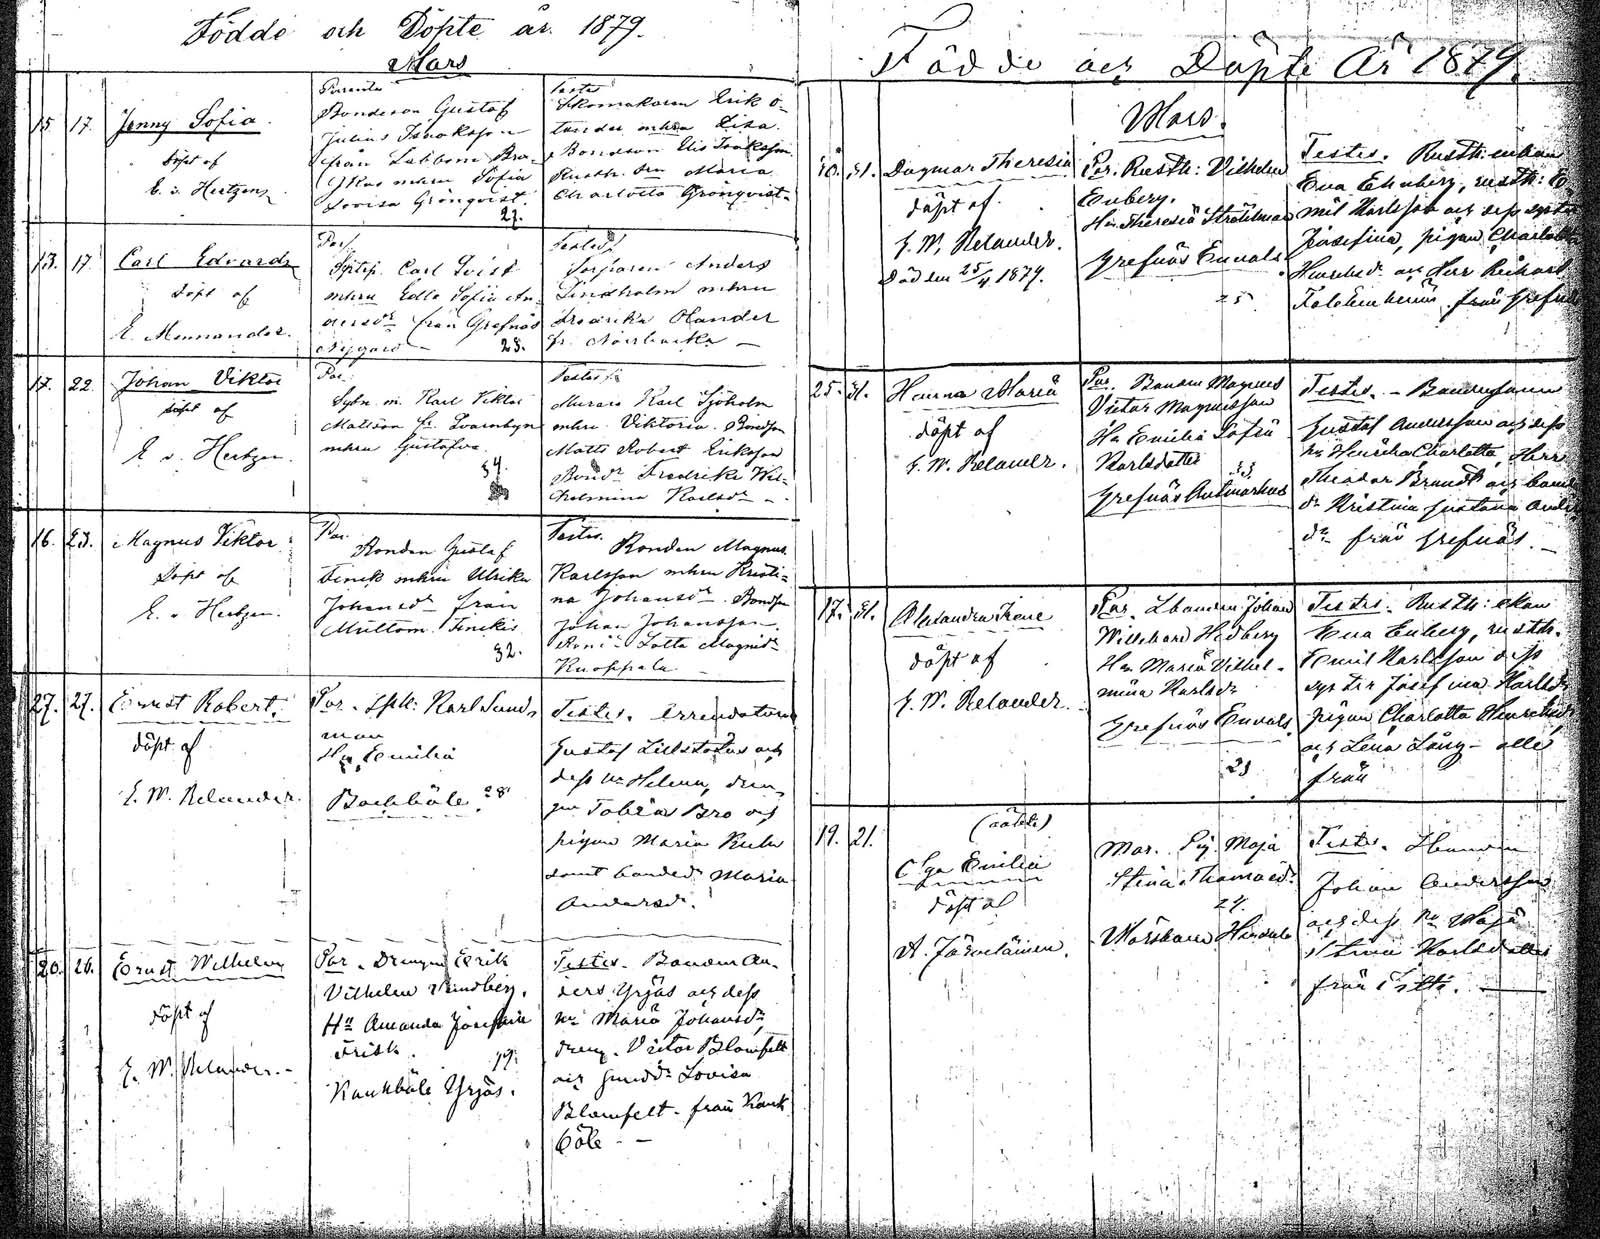 Födde och Döpte år 1879.
Mars
15. 17. Jenny Sofia.
döpt af
E. v. Hertzen
Parentes
Bondeson Gustaf
Julius Isaksson
från Labbom Bro-
mhru Sofia
Lovisa Grönqvist.
27.
Testes
Skomakaren Erik O-
lander mhru Lisa.
Bondson Elis Isaksson
Rusth. dr Maria
Charlotta Grönqvist.
13. 17 Carl Edvard
döpt af
E. Mennander.
Par.
Carl Qvist
mhru Edla Sofia An-
dersdr från Grefnäs
Nygård
28.
Testes
Torparen Anders
Lindholm mhru
Fredrika Olander
fr. Norrbacka
17. 22. Johan Viktor
döpt af
E. v. Hertzen.
Par.
Sytn. m. Karl Viktor
Mattson fr. Qvarnbyn
mhru Gustafva
34.
Testes
Murare Karl Sjöholm
mhru Viktoria. Bondson
Matts Robert Eriksson
Bondr Fredrika Wil-
helmina Karlsdr
16. 23. Magnus Viktor
Döpt af
E. v. Hertzen.
Par.
Bonden Gustaf
Finck mhru Ulrika
Johansdr från
Mulltom Finckis
32.
Testes.
Bonden Magnus
Karlsson mhru Kristi-
na Johansdr. Bondson
Johan Johansson.
Lotta Magnidr
Knoppala
27. 27. Ernst Robert.
döpt af
E. W. Relander.
Par. Karl Sunds
man
Hu Emilia
Backböle 28
Testes. Arrendatorn
Gustaf Lillstotus och
dess hu Helena, dren-
gen Tobias Bro och
pigan Maria
samt bondedr Maria
Andersdr.
20. 26. Ernst Wilhelm
döpt af
E. W. Relander.
Par. Drengen Erik
Vilhelm Lindberg.
Hu Amanda Josefina
Frisk.
19.
Kankböle Yrjäs.
Testes. Bonden An-
ders Yrjäs och dess
hu Maria Johansdr,
dreng. Victor Blomfelt
och Lovisa
Blomfelt. från Kank
böle
Födde och Döpte År 1879.
Mars.
10. 31. Dagmar Theresia
döpt af
E. W. Relander.
Död den 25/4 1879.
Par. Rusth: Vilhelm
Enberg.
Hu Theresia Stråhlman
Grefnäs Ennals
25
Testes. Rusth: enkan
Eva Enberg, rusth: E-
mil Karlsson och dess syster
Josefina, pigan Charlotta
Henriksdr och Herr Richard
från Grefnäs
25. 31. Hanna Maria
döpt af
E. W. Relander.
Par. Bonden Magnus
Victor Magnusson
Hu Emilia Sofia
Karlsdotter
33
Grefnäs Antmarkus
Testes. Bondesonen
Gustaf Andersson och dess
hu Henrika Charlotta, Herr
Theodor Brandt och bonde
dr Kristina Gustava Anders
dr från Grefnäs.
17. 31. Alexandra Irene
döpt af
E. W. Relander.
Par. Johan
Willehard Hedberg
Hu Maria Vilhel-
mina Karlsdr
Grefnäs Ennals
23
Testes. Rusth: enkan
Eva Enberg, rusth.
Emil Karlsson dess
syster Josefina Karlsdr
pigan Charlotta Henriksdr
och Lena Lång alla
från
19. 21. (oäkta)
Olga Emilia
döpt af
A. Järveläinen.
Mor. Pig. Maja
Stina Thomasdr
24.
Mårskom
Testes.
Johan Andersson
och dess hu Maja
Stina Karlsdotter
från